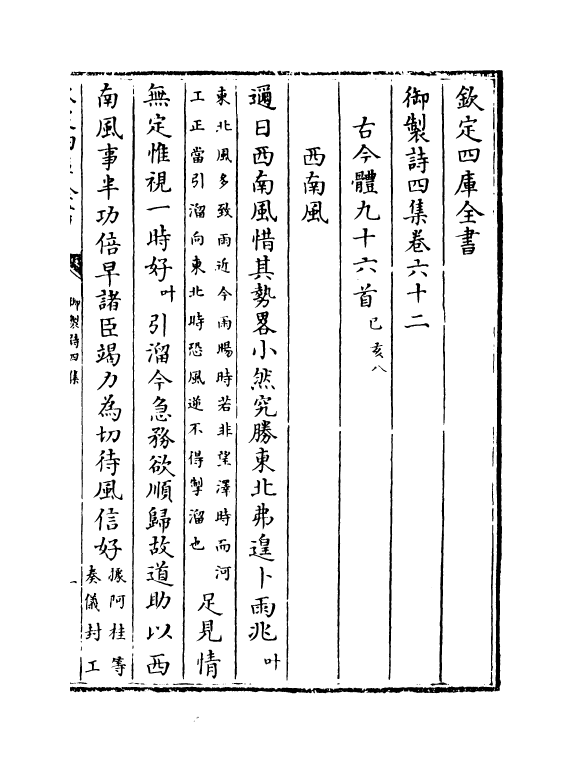 欽定四庫全書
御製詩四集卷六十二
古今體九十六首己亥八
西南風
邇日西南風惜其勢畧小然究勝東北弗遑卜雨兆叶
東北風多致雨近今雨暘時若非望澤時而河
工正當引溜向東北時恐風逆不得掣溜也
足見情
無定惟視一時好叶引溜今急務欲順歸故道助以西
南風事半功倍早諸臣竭力為切待風信好
據阿桂等
奏儀封工
御製詩四集
一